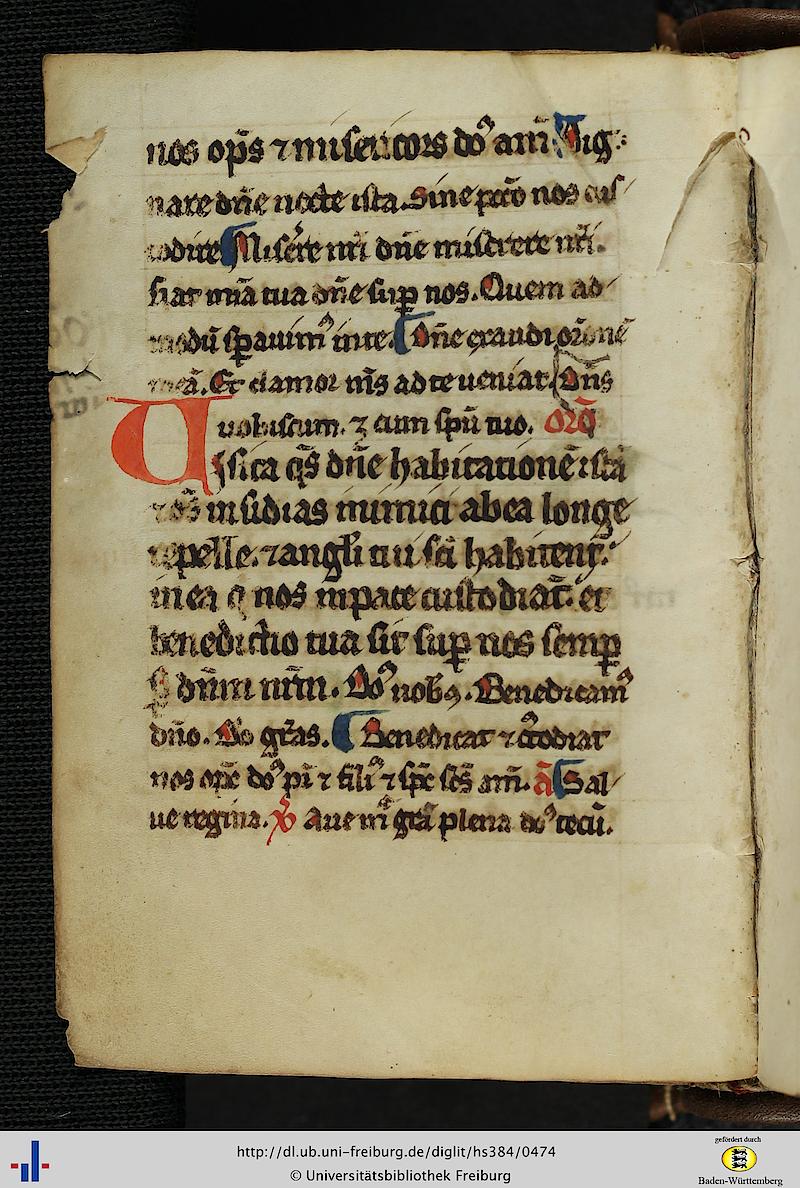 nos op̄s ⁊ misericors do᷒ am̄ Dig
nare dn̄e nocte ista. Sine pctō nos cus
todire Miserēre nr̄i dn̄e miserere nr̄i.
fiat mīa tua dn̄e suꝑ nos. Quem ad
modū sꝑauim᷒ in te. Dn̄e exaudi or̄onē
meā. Et clamor ms̄ ad te ueniat. Dn̄s
uobiscum. ⁊ cum sp̄u tuo. or̄o
Uisita q̄s dn̄e habitationē istā
⁊ oēs insidias inimici ab ea longe
repelle. ⁊ angl̄i tui sc̄i habitent.
in ea q̄ nos in pace custodiāt. et
benedictio tua sit suꝑ nos semꝑ
ꝑ dn̄m nr̄m. Do᷒ nobꝯ. Benedicam᷒
dn̄o. Do gr̄as. Benedicat ⁊ c᷒todiat
nos op̄e do᷒ pr̄ ⁊ fili᷒ ⁊ sp̄c sc̄s am̄. ā Sal
ue regina. ℣ Aue m̄ gr̄a plena do᷒ tecū.
http://dl.ub.uni-freiburg.de/diglit/hs384/0474
© Universitätsbibliothek Freiburg
gefördert durch
Baden-Württemberg